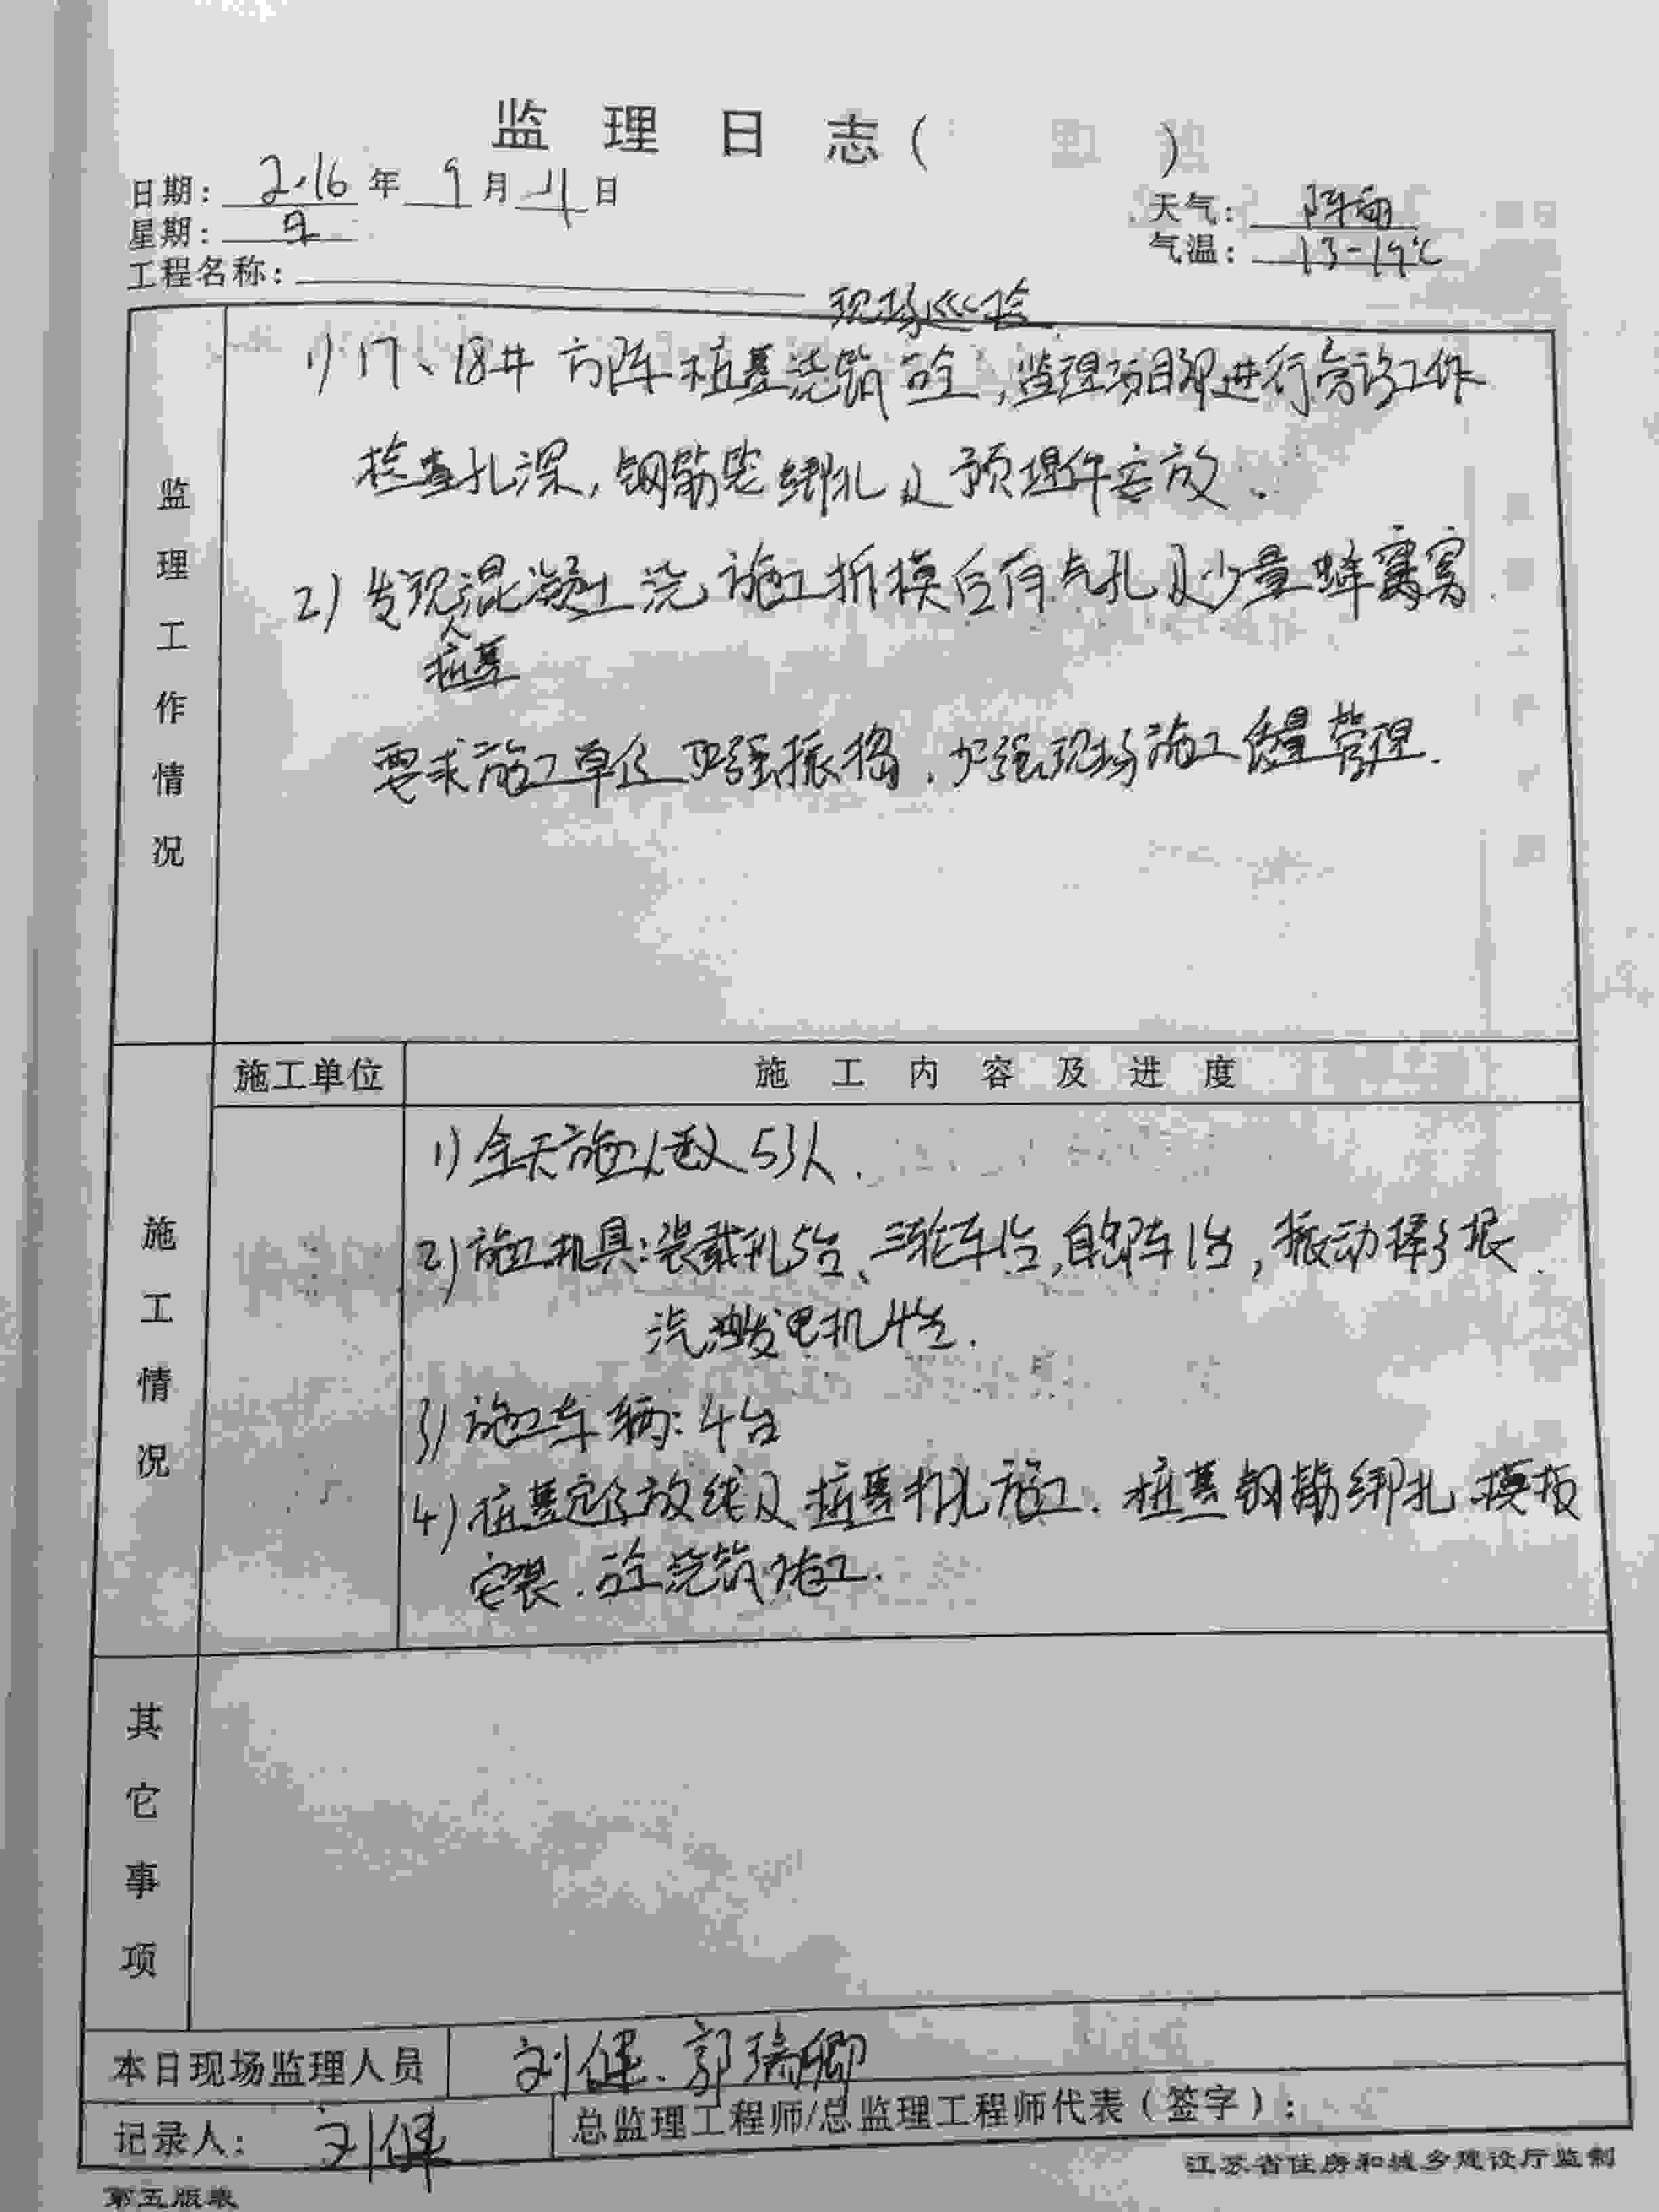 监理日志( )
日期: 2016年 9月 11日
天气: 阵雨
星期: 日
气温: 13-19℃
工程名称:
现场巡检
1) 17、18# 方阵桩基浇筑砼,监理项目部进行旁站工作
检查孔深,钢筋笼绑扎及预埋件安放.
2) 发现混凝土浇施工拆模后有气孔及少量蜂窝
桩基
要求施工单位加强振捣.加强现场施工质量管理.
监理工作情况
施工单位
施工内容及进度
1) 全天施工人数53人.
2) 施工机具:装载机5台、三轮车1台,自卸车1台,振动棒3根.
汽油发电机4台.
3) 施工车辆:4台
4) 桩基定位放线及桩基打孔施工.桩基钢筋绑扎模板
安装.砼浇筑施工.
施工情况
其它事项
本日现场监理人员 刘健、郭瑞卿
记录人: 刘健
总监理工程师/总监理工程师代表(签字):
江苏省住房和城乡建设厅监制
第五版表